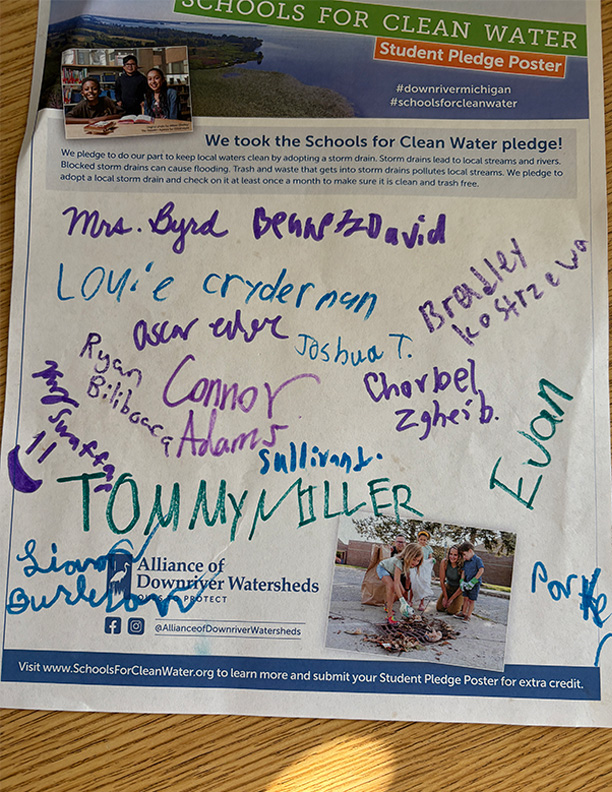 SCHOOLS FOR CLEAN WATER
Student Pledge Poster
#downrivermichigan
#schoolsforcleanwater
We took the Schools for Clean Water pledge!
We pledge to do our part to keep local waters clean by adopting a storm drain. Storm drains lead to local streams and rivers.
Blocked storm drains can cause flooding. Trash and waste that gets into storm drains pollutes local streams. We pledge to
adopt a local storm drain and check on it at least once a month to make sure it is clean and trash free.
Mrs. Byrd David
Louie cryderman
Bradley
Kostrzewa
oscar
Joshua T.
Ryan
Connor
Adams
Charbel
Zgheib.
Evan
11
Sullivan J.
TOMMY MILLER
Liam
Burleson
Alliance of
Downriver Watersheds
PROTECT
@AllianceofDownriverWatersheds
Visit www.SchoolsForCleanWater.org to learn more and submit your Student Pledge Poster for extra credit.